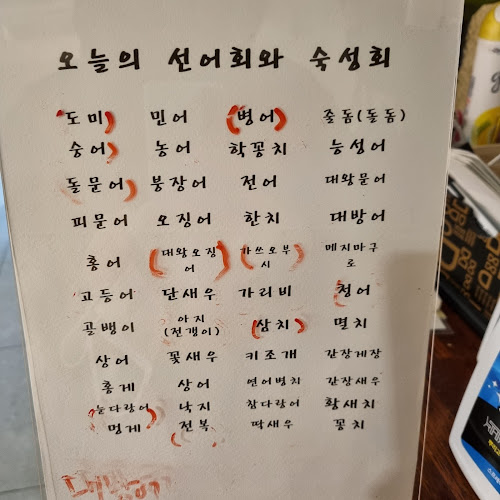 오늘의 선어회와 숙성회
도미 민어 병어 줄돔(돌돔)
숭어 농어 학꽁치 능성어
돌문어 붕장어 전어 대왕문어
피문어 오징어 한치 대방어
홍어 대왕오징어 가쓰오부시 메지마구로
고등어 단새우 가리비 청어
골뱅이 아지(전갱이) 삼치 멸치
상어 꽃새우 키조개 간장게장
홍게 상어 연어뱃치 간장새우
눈다랑어 낙지 참다랑어 황새치
멍게 전복 딱새우 꽁치